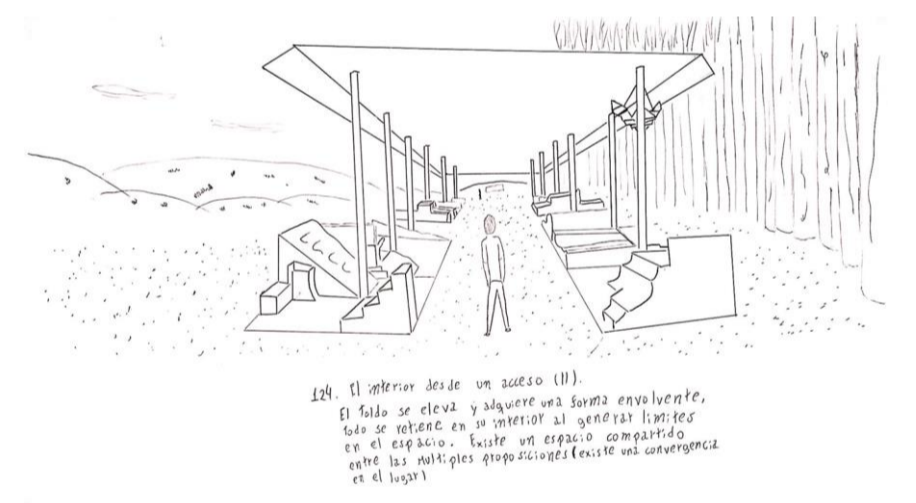 124. El interior desde un acceso (II).
El toldo se eleva y adquiere una forma envolvente,
todo se retiene en su interior al generar limites
en el espacio. Existe un espacio compartido
entre las multiples proposiciones (existe una convergencia
en el lugar)